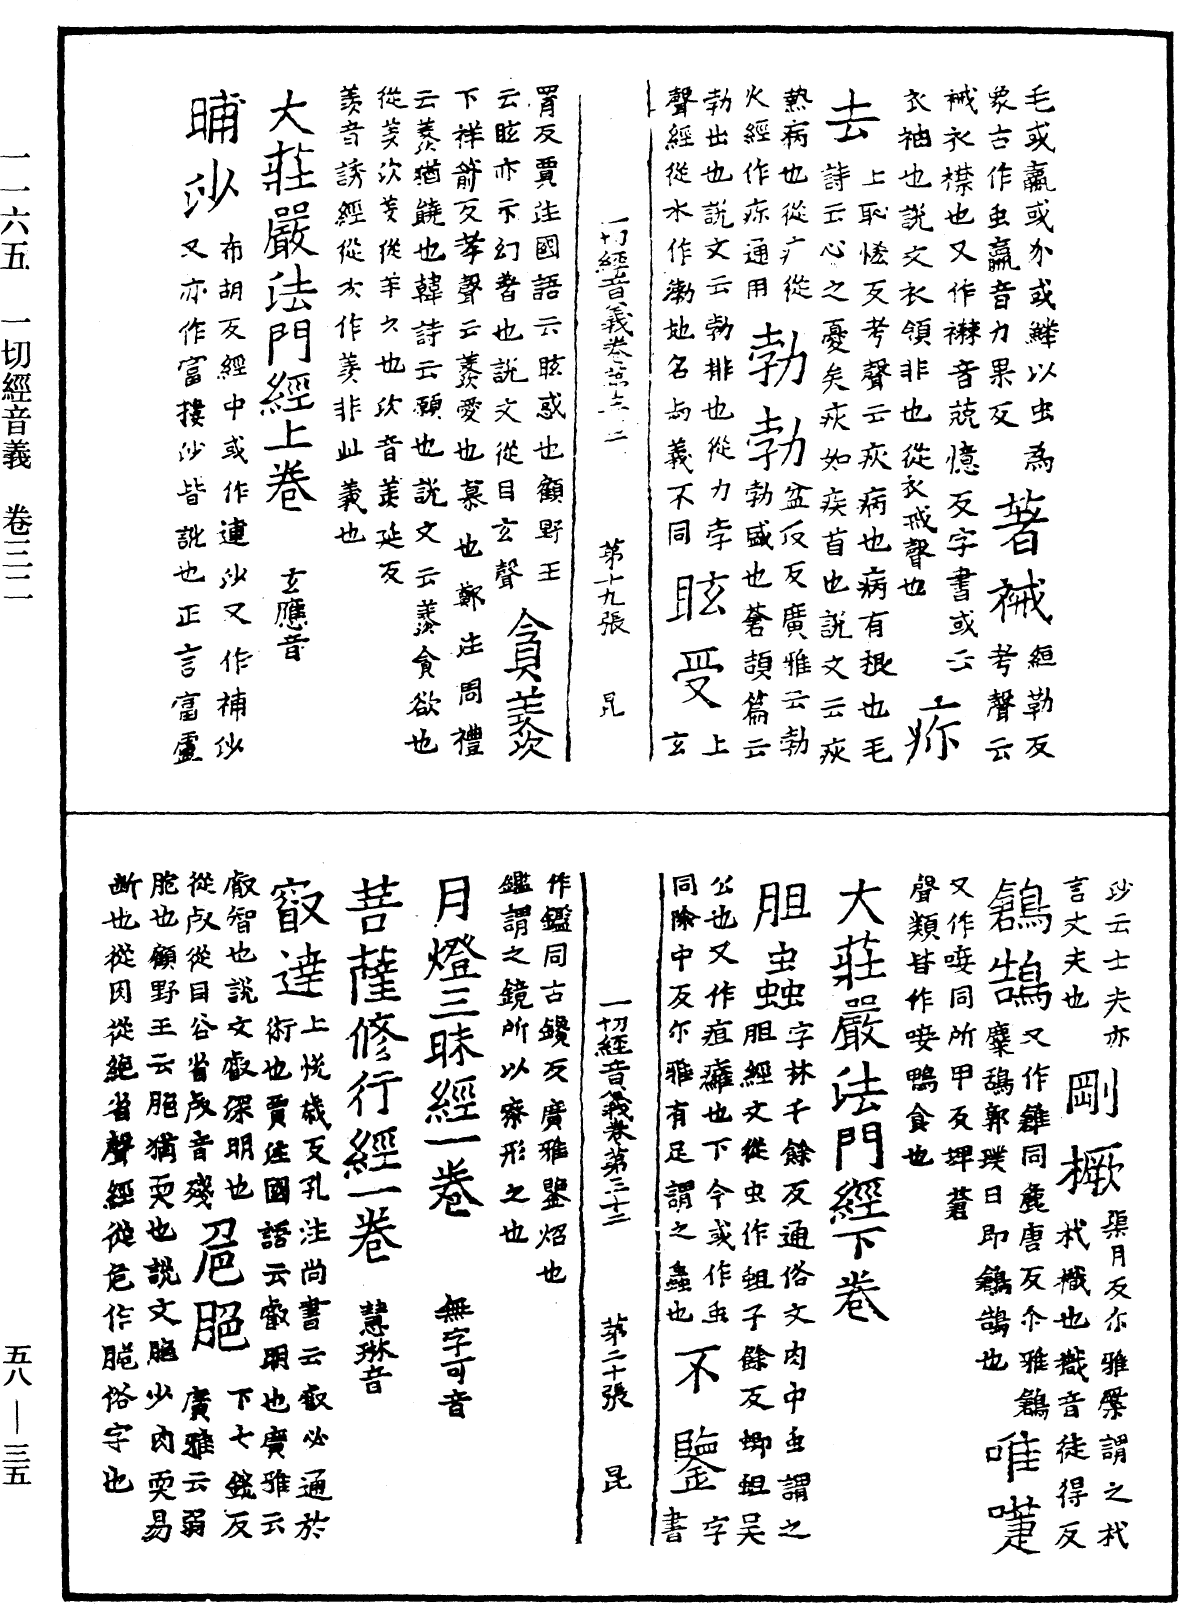 毛或蠃或外或蜯以虫為
象古作虫蠃音力果反
著裓
絙勒反
考聲云
裓衣襟也又作襋音兢憶反字書或云
衣袖也說文衣領非也從衣戒聲也
去
上恥愘反考聲云疢病也病有根也毛
詩云心之憂矣疢如疾首也說文云疢
熱病也從疒從
火經作疹通用
勃勃
盆沒反廣雅云勃
勃盛也蒼頡篇云
勃出也說文云勃排也從力孛
聲經從水作渤地名与義不同
眩受
上
玄
一切經音義卷第三十二
第十九張
昆
罥反賈注國語云眩惑也顧野王
云眩亦示幻瞀也說文從目玄聲
貪羨
下祥箭反孝聲云羨愛也慕也鄭注周禮
云羨猶饒也韓詩云願也說文云羨貪欲也
從羑次羑從羊久也次音羡延反
羨音誘經從次作羨非此義也
大莊嚴法門經上卷
玄應音
晡沙
布胡反經中或作逋沙又作補沙
又亦作富摟沙皆訛也正言富盧
沙云士夫亦
言丈夫也
剛橛
渠月反尒雅橜謂之杙
杙橶也橶音徒得反
鶬鴰
又作雒同麁唐反尒雅鶬
麋鴰郭璞曰即鶬鴰也
唯㗱
又作唼同所甲反埤蒼
聲類皆作唼鴨食也
大莊嚴法門經下卷
胆虫蟲
字林千餘反通俗文肉中虫謂之
胆經文從虫作蛆子餘反蝍蛆吴
公也又作疽癰也下今或作虫字
同除中反尒雅有足謂之蟲也
不鑒
書
一切經音義卷第三十二
第二十張
昆
作鑑同古鑱反廣雅鑒炤也
鑑謂之鏡所以察形之也
月燈三昧經一卷
無字可音
菩薩修行經一卷
慧琳音
叡達
上悅歲反孔注尚書云叡必通於
術也賈注國語云叡明也廣雅云
叡智也說文叡深明也
從𣦼從目谷省𣦼音殘
脃
下七銳反
廣雅云弱
脆也顧野王云脃猶耎也說文脃少肉耎易
斷也從肉從絕省聲經從危作脆俗字也
一一六五
一切經音義
卷三二
五八—三五